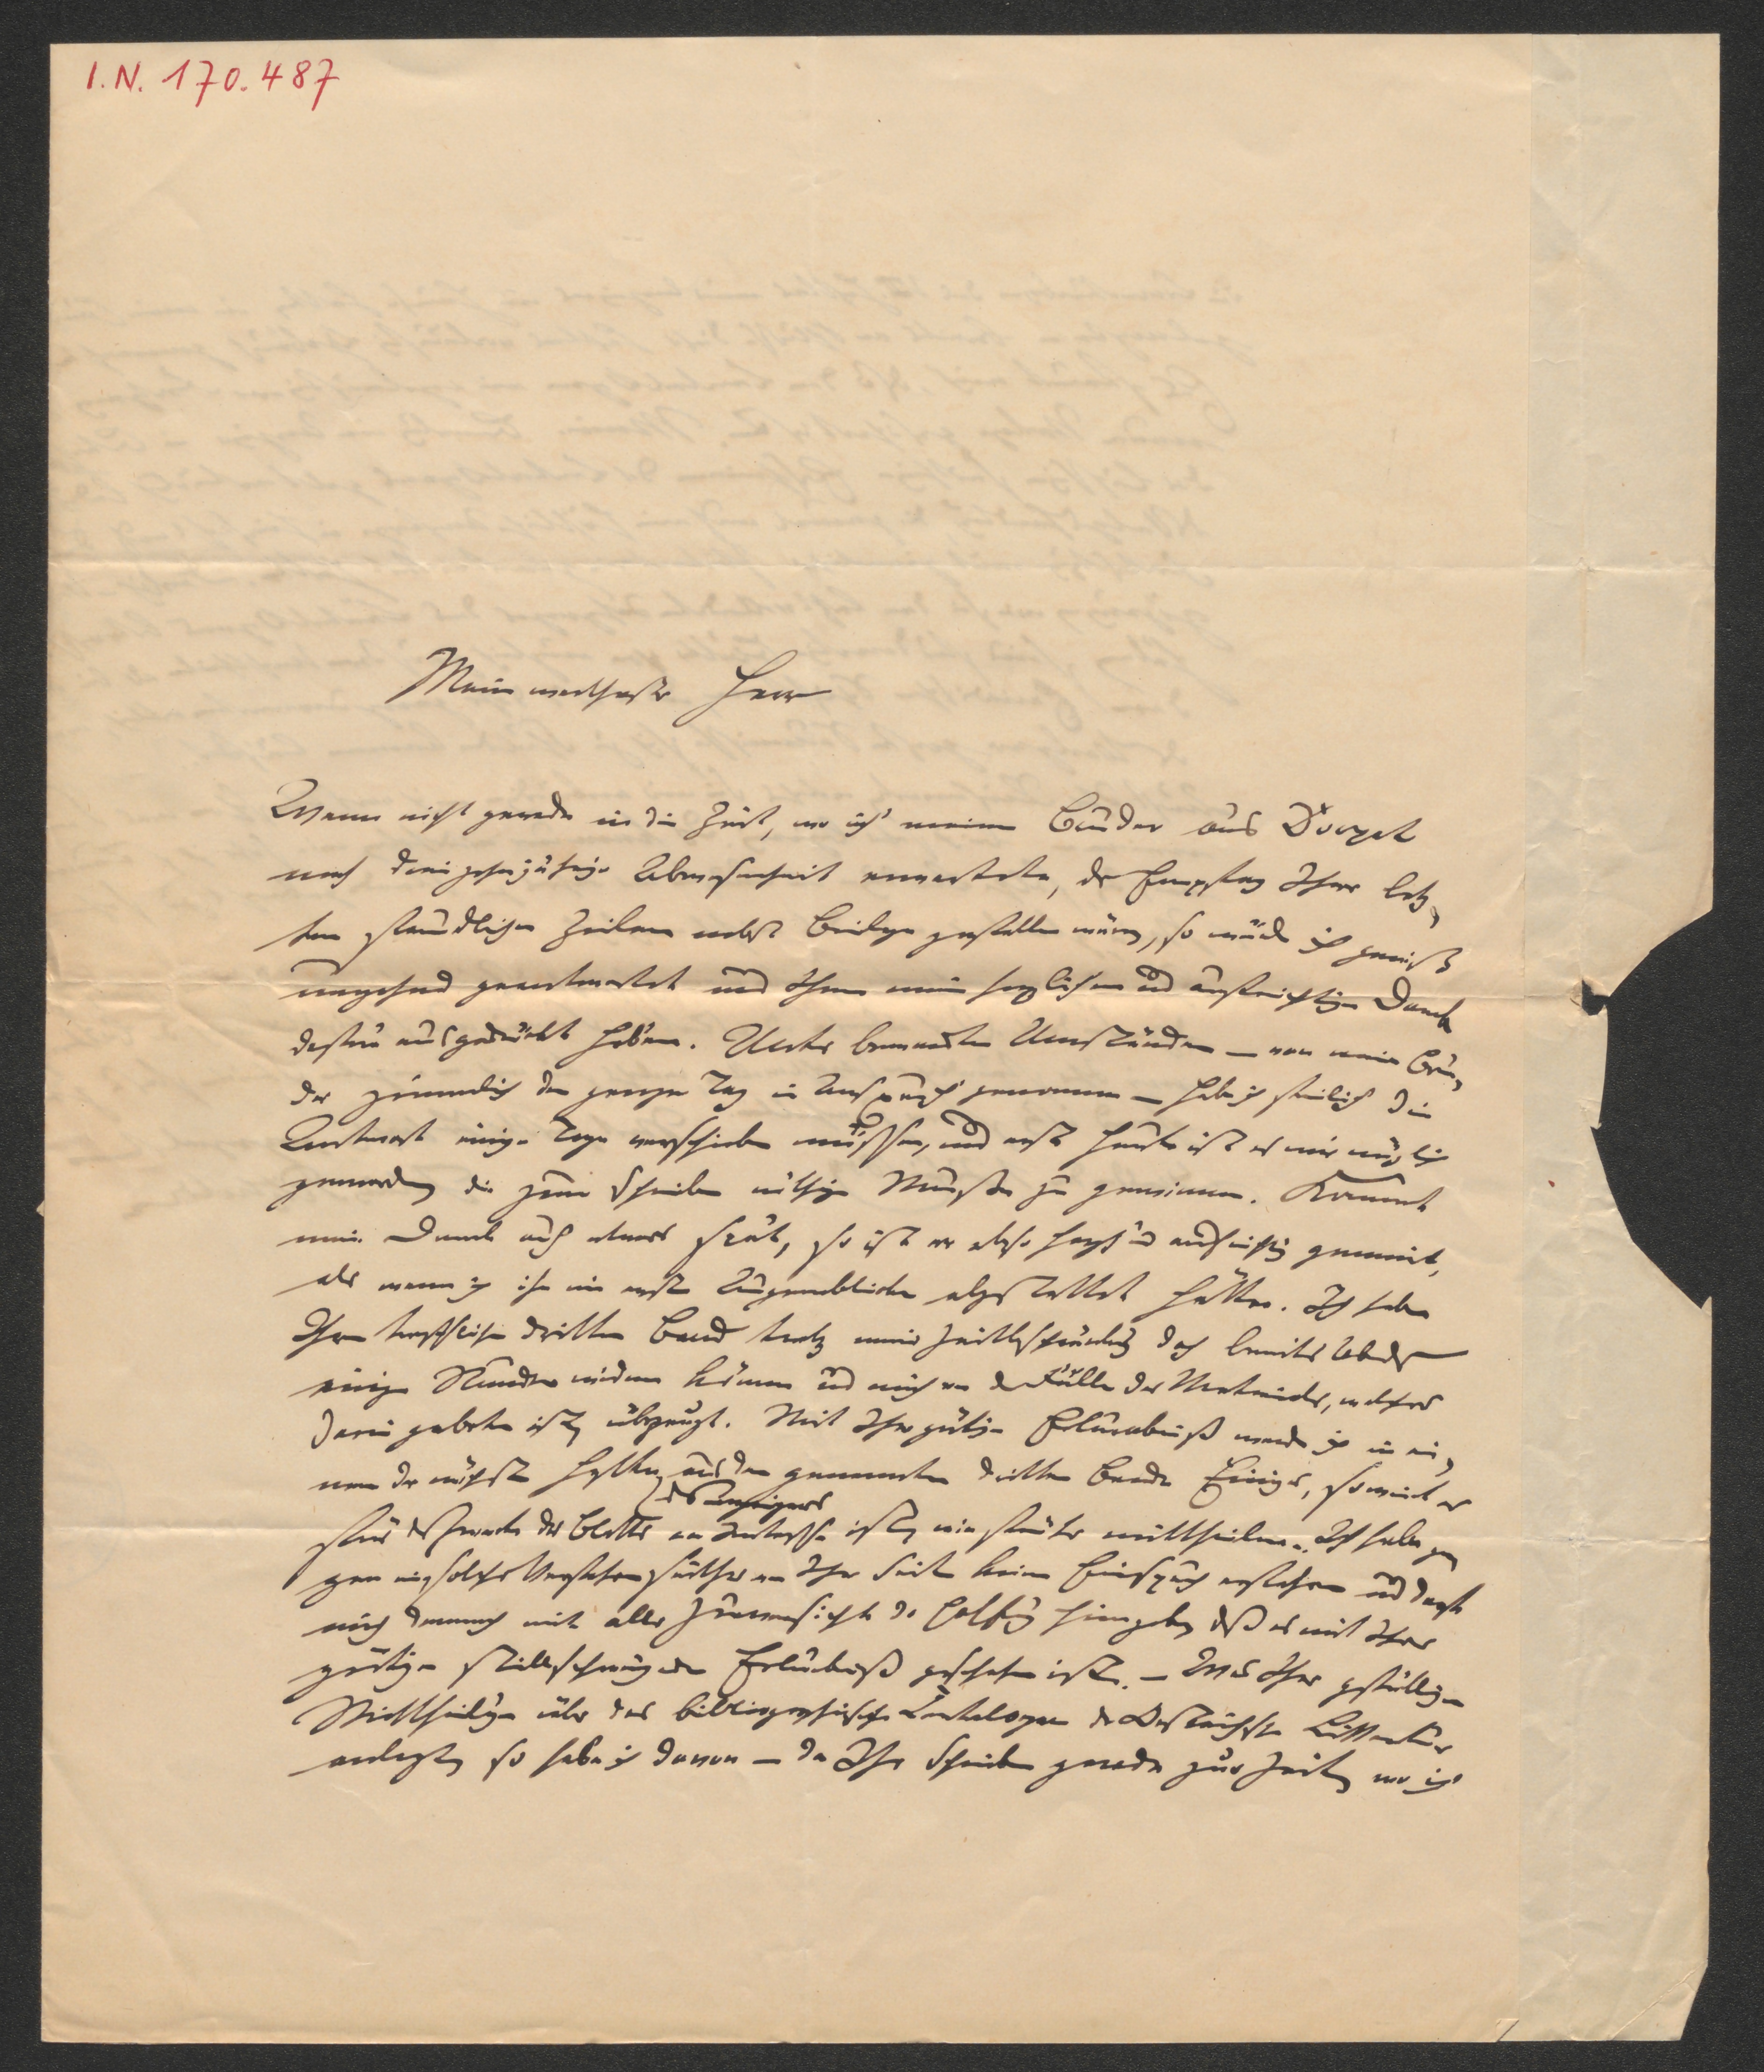 I.N. 170.487
Mein werthester Herr
Wenn nicht gerade in die Zeit, wo ich meinen Bruder aus Dorpat
nach dreizehnjähriger Abwesenheit erwartete, der Empfang Ihrer letz-
ten freundlichen Zeilen nebst Beilage gefallen wäre, so würde ich gewiß
umgehend geantwortet und Ihnen meinen herzlichen und aufrichtigen Dank
dafür ausgedrückt haben. Unter bewandten Umständen – von meinem Bru-
der ziemlich den ganzen Tag in Anspruch genommen – habe ich freilich die
Antwort einige Tage verschieben müssen, und erst heute ist es mir möglich
geworden, die zum Schreiben nöthige Muße zu gewinnen. Kommt
mein Dank auch etwas spät, so ist er ebenso herzlich und aufrichtig gemeint,
als wenn ich ihn im ersten Augenblicke abgestattet hätte. Ich habe
Ihrem trefflichen dritten Band trotz meiner Zeitbeschränkung doch bereits
einige Stunden widmen können und mich von der Fülle des Materials, welches
darin geboten ist, überzeugt. Mit Ihrer gütigen Erlaubniß werde ich in ei-
nem der nächsten Hefte des Anzeigers aus dem genannten dritten Bande Einiges, soweit es
für die Zwecke des Blattes von Interesse ist, wie früher mittheilen. Ich habe ge-
gen ein solches Verfahren früher von Ihrer Seite keinen Einspruch erfahren und darf
mich demnach mit aller Zuversicht der Hoffnung hingeben, daß es mit Ihrer
gütigen stillschweigenden Erlaubniß geschehen ist. – Was Ihre gefälligen
Mittheilungen über das bibliographische Cataloge der Oesterreichischen Litteratur
anlangt, so habe ich davon – da Ihr Schreiben gerade zur Zeit, wo ich